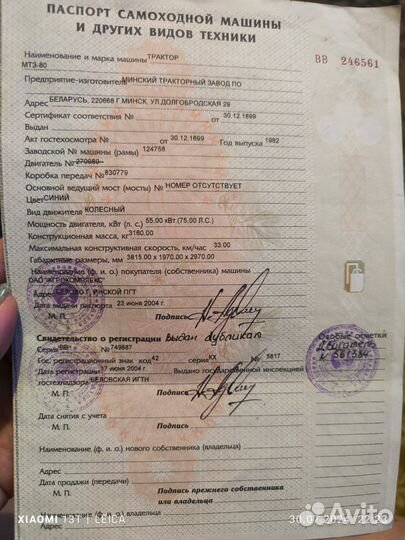 ПАСПОРТ САМОХОДНОЙ МАШИНЫ
И ДРУГИХ ВИДОВ ТЕХНИКИ
ВВ 246561
Наименование и марка машины ТРАКТОР
МТЗ-80
Предприятие-изготовитель МИНСКИЙ ТРАКТОРНЫЙ ЗАВОД ПО
Адрес БЕЛАРУСЬ, 220668 Г МИНСК, УЛ.ДОЛГОБРОДСКАЯ 29
Сертификат соответствия № от 30.12.1899
Выдан
Акт гостехосмотра № от 30.12.1899 Год выпуска 1982
Заводской № машины (рамы) 124768
Двигатель № 270080
Коробка передач № 830779
Основной ведущий мост (мосты) № НОМЕР ОТСУТСТВУЕТ
Цвет СИНИЙ
Вид движителя КОЛЕСНЫЙ
Мощность двигателя, кВт (л. с.) 55.00 кВт.(75.00 Л.С.)
Конструкционная масса, кг 3160.00
Максимальная конструктивная скорость, км/час 33.00
Габаритные размеры, мм 3815.00 x 1970.00 x 2970.00
Наименование (ф. и. о.) покупателя (собственника) машины
ОАО "АГРОКОМПЛЕКС"
Адрес
Дата продажи (передачи) 23 июня 2004 г.
М. П. Подпись
Свидетельство о регистрации выдан дубликат
Серия ВВ № 749887
Гос. регистрационный знак код 42 серия КХ № 5817
Дата регистрации 17 июня 2004 г. Выдано государственной инспекцией
гостехнадзора БЕЛОВСКАЯ ИГТН
М. П. Подпись
Особые отметки
Двигатель
N 561334
Дата снятия с учета
М. П. Подпись
Наименование (ф. и. о.) нового собственника (владельца)
Адрес
Дата продажи (передачи)
М. П. Подпись прежнего собственника
или владельца
Наименование (ф. и. о.) нового собственника (владельца)
Адрес
XIAOMI 13T | LEICA
30.07.2024 22:23
Avito